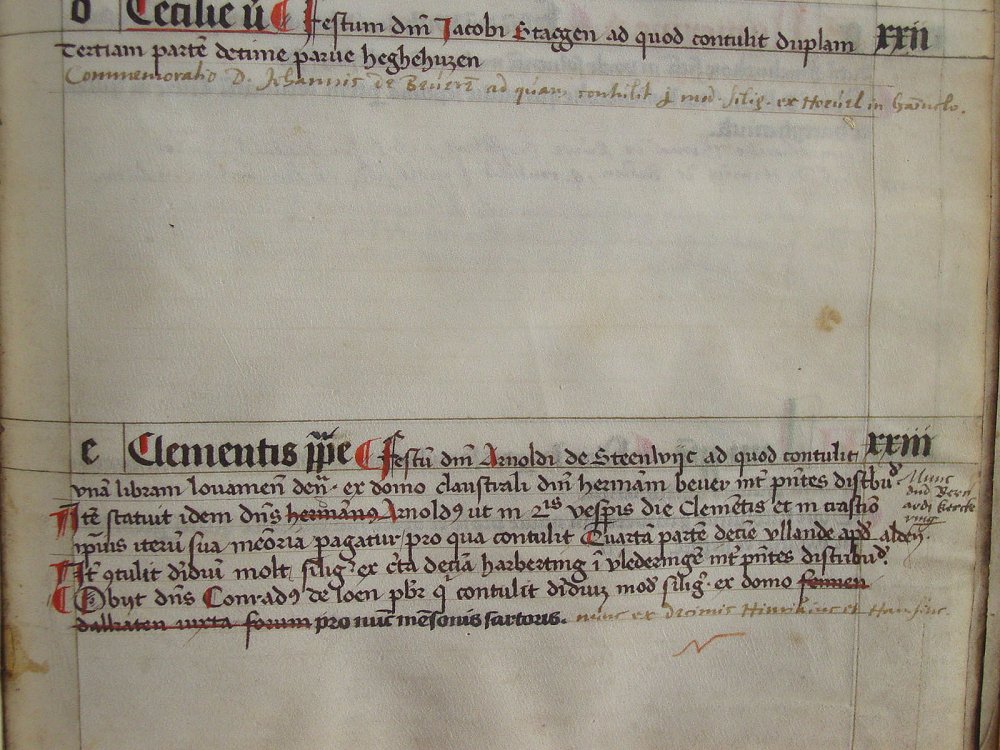 d Cecilie v̄ Festum dm̄ Jacobi Staggen ad quod contulit duplam xxii
Tertiam partē decime parue heghehuzen
Commemoratio D. Johannis de Beuerē ad quam contulit j mod silig. ex Hoeuel in
e Clementis pp̄e Festū dm̄ Arnoldi de Steenwijc ad quod contulit xxiii
vnā libram louameñ deñ ex domo claustrali dm̄ hermām beuer int̄ pn̄tes distbuđ
Nunc dn̄d Bern
ardi
Itē statuit idem dn̄s hermān9 Arnold9 ut in 2is vesp̄is die Clemētis et in crastīo
ip̄ius iterū sua meōria pagatur pro qua contulit Quartā partē decīe vllande apđ alden.
It̄ 9tulit dīdiū molt silig̃ ex c̄ta decīa harbertīng ī vlederinge int̄ pn̄tes distribuđ
Obijt dn̄s Conrad9 de loen pb̄r q̄ contulit dīdiuʒ mođ silig̃ ex domo
iuxta forum pro nūc mēsonis sartoris. nunc ex decimis Hinrikinc et